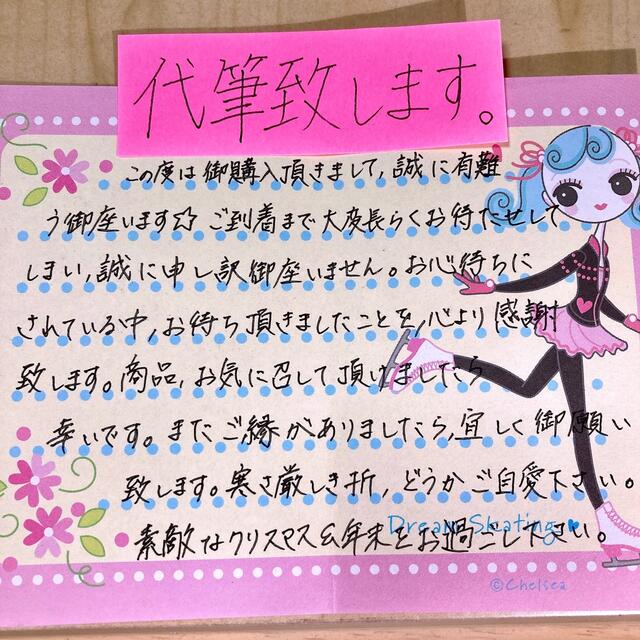 代筆致します。
この度は御購入頂きまして、誠に有難
う御座います☆ ご到着まで大変長らくお待たせして
しまい、誠に申し訳御座いません。お心待ちに
されている中、お待ち頂きましたことを、心より感謝
致します。商品、お気に召して頂けましたら
幸いです。またご縁がありましたら、宜しく御願い
致します。寒さ厳しき折、どうかご自愛下さい。
Dream Skating
素敵なクリスマス&年末をお過ごし下さい。
©Chelsea